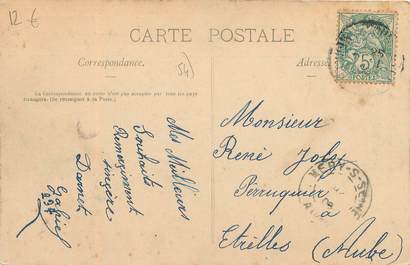 12 €
CARTE POSTALE
Correspondance.
Adresse
54)
La Correspondance au recto n'est pas acceptée par tous les pays
étrangers. (Se renseigner à la Poste).
5c
POSTES
Mes Meilleurs
Souhaits
Remerciment
sincère
Damet
Gabriel
Monsieur
René Joly
Perruquier
à
Etrelles
(Aube)
MERY-S-SEINE